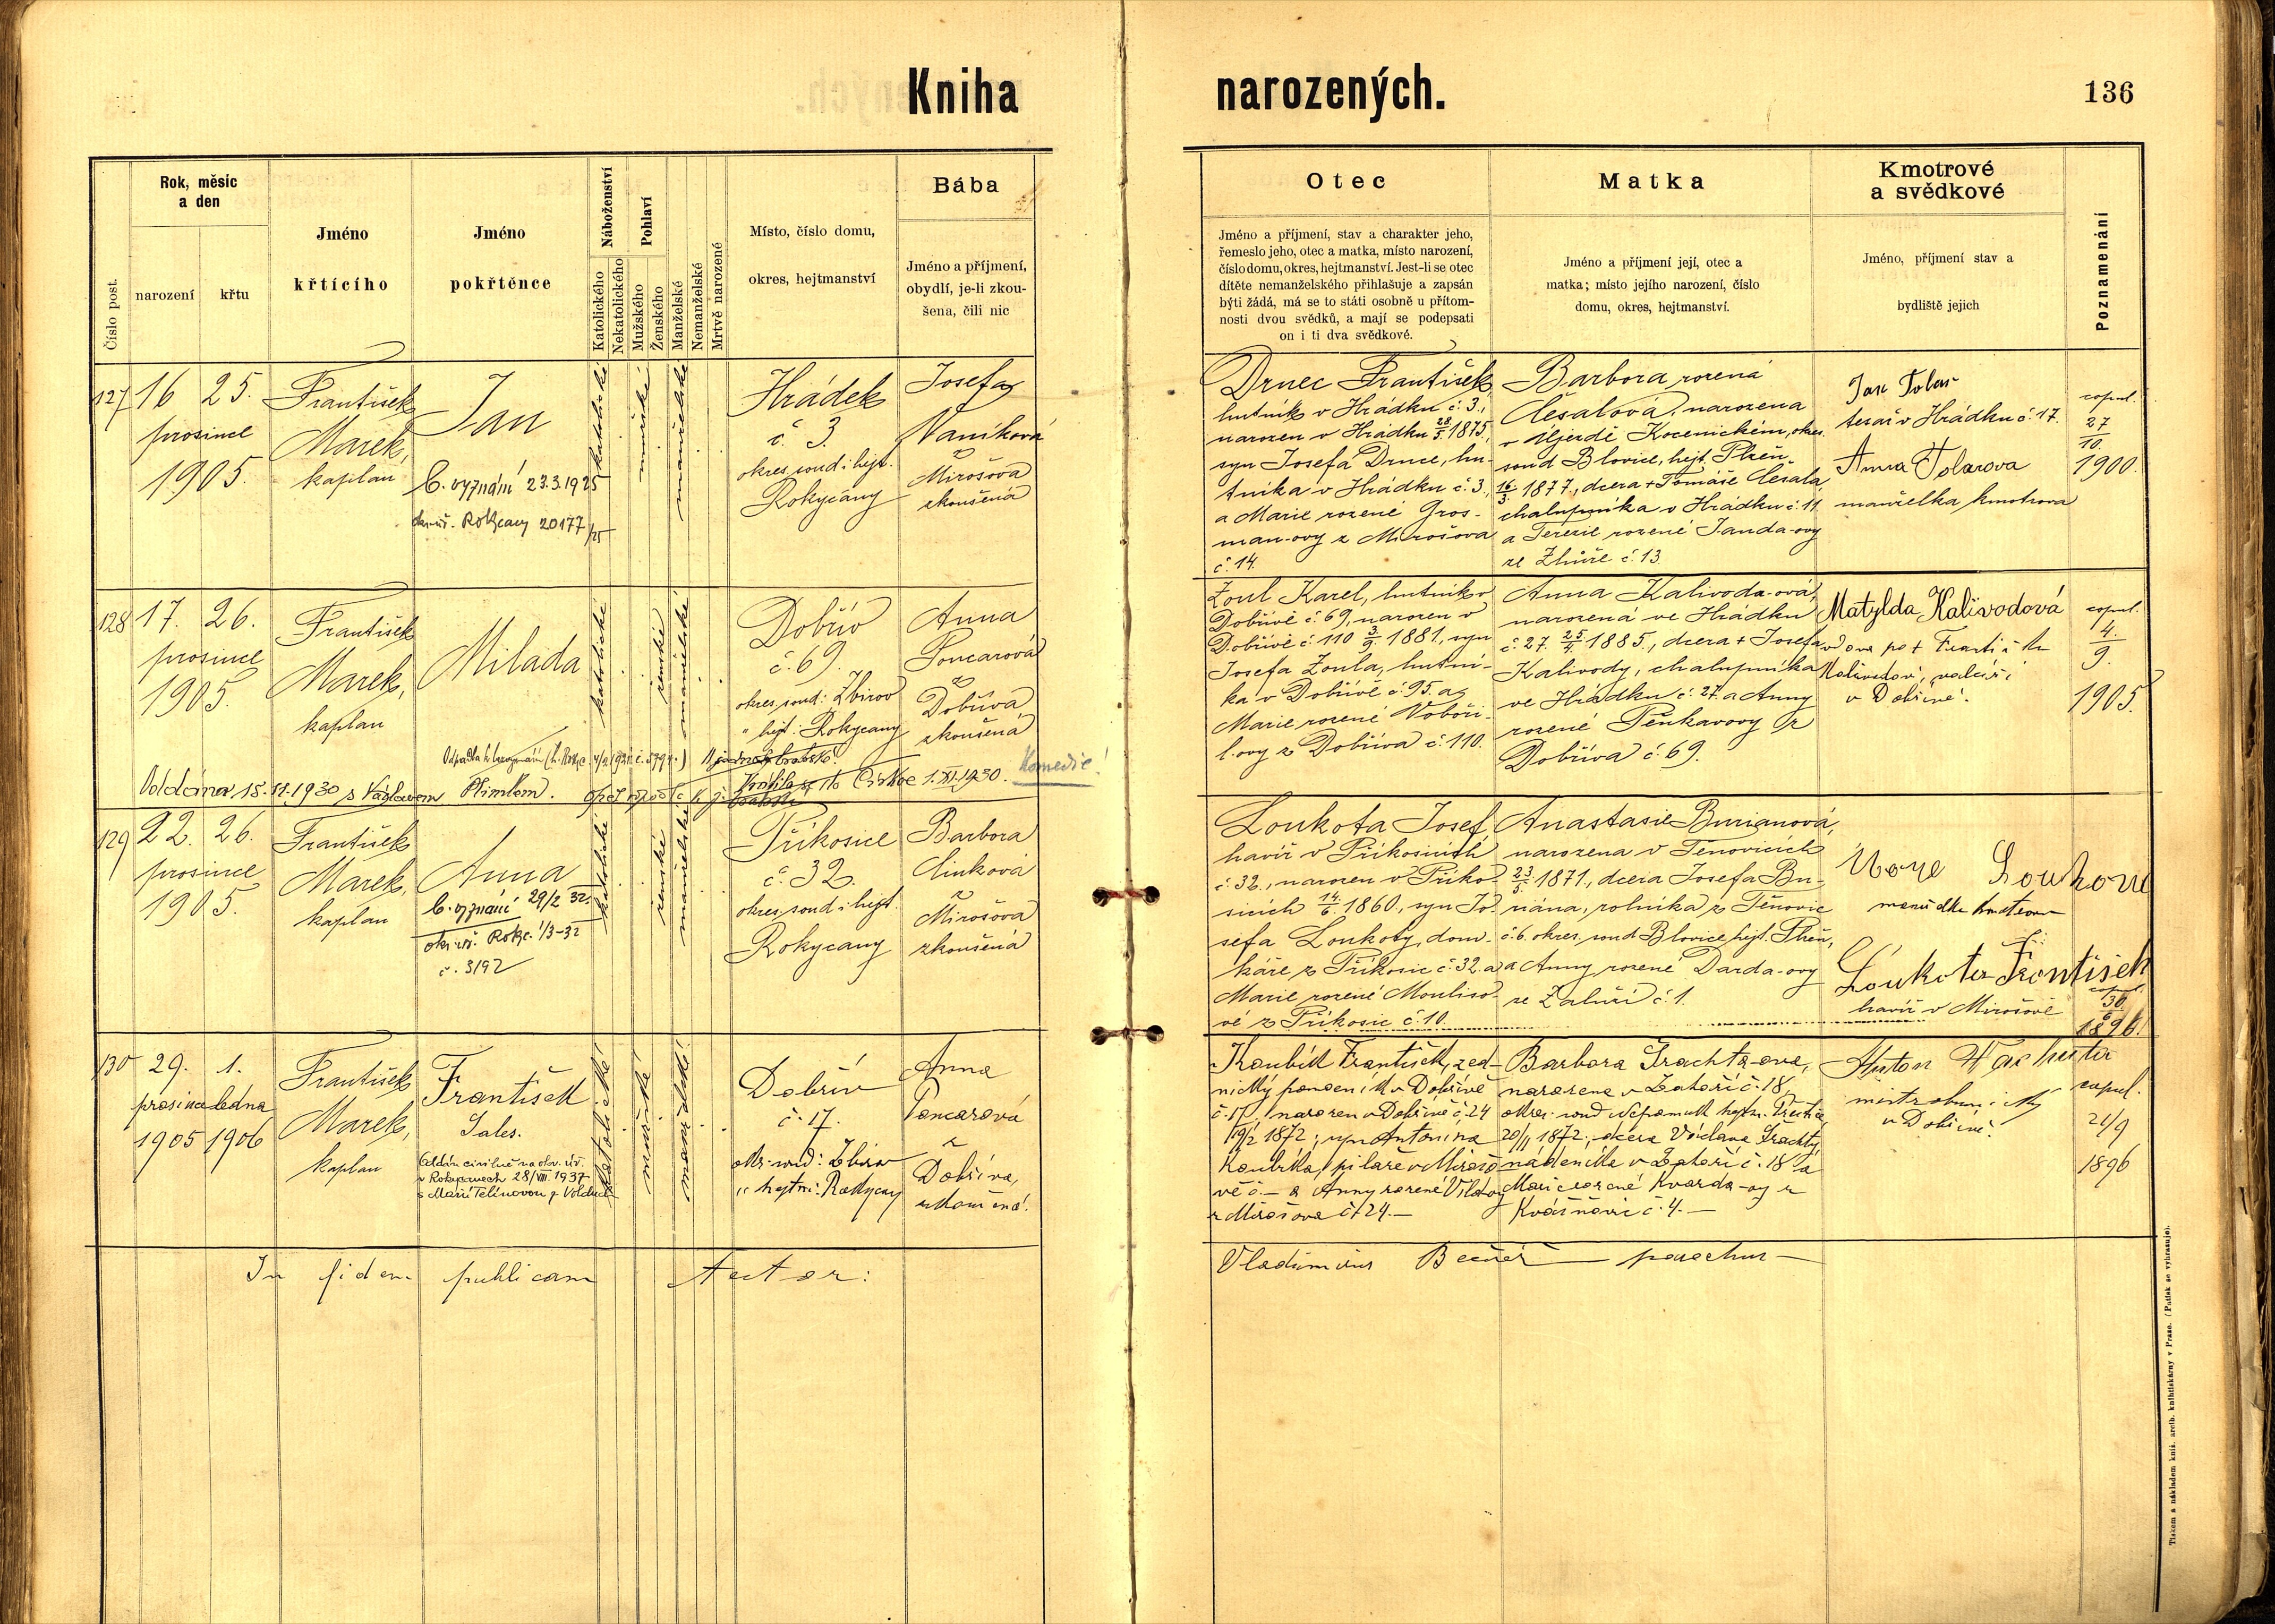 Kniha narozených.
136
Číslo post.
Rok, měsíc
a den
narození
křtu
Jméno
křtícího
Jméno
pokřtěnce
Náboženství
Katolického
Nekatolického
Pohlaví
Mužského
Ženského
Manželské
Nemanželské
Mrtvě narozené
Místo, číslo domu,
okres, hejtmanství
Bába
Jméno a příjmení,
obydlí, je-li zkou-
šena, čili nic
Otec
Jméno a příjmení, stav a charakter jeho,
řemeslo jeho, otec a matka, místo narození,
číslo domu, okres, hejtmanství. Jest-li se otec
dítěte nemanželského přihlašuje a zapsán
býti žádá, má se to státi osobně u přítom-
nosti dvou svědků, a mají se podepsati
on i ti dva svědkové.
Matka
Jméno a příjmení její, otec a
matka; místo jejího narození, číslo
domu, okres, hejtmanství.
Kmotrové
a svědkové
Jméno, příjmení stav a
bydliště jejich
Poznamenání
127
16 25.
prosince
1905.
František
Marek,
kaplan
Jan
b. vyznání 23.3.1925
Rokycany 20177/25
katolické
mužské
manželské
Hrádek
č. 3.
okres. soud i hejt.
Rokycany
Josefa
Vaníková
z
Mirošova
zkoušená
Drnec František,
hutník v Hrádku č. 3.,
narozen v Hrádku 28/5. 1875.,
syn Josefa Drnce, hu-
tníka v Hrádku č. 3.,
a Marie rozené Gros-
man-ovy z Mirošova
č. 14.
Barbora rozená
Česalová, narozena
v Újezdě Kocenickém, okres.
soud Blovice, hejt. Plzeň
16/3. 1877., dcera + Tomáše Česala,
chalupníka v Hrádku č. 11.
a Terezie rozené Janda-ovy
ze Zhůře č. 13.
Jan Tolar
tesař v Hrádku č. 17.
Anna Tolarova
manželka kmotrova
copul.
27/10.
1900.
128
17. 26.
prosince
1905.
František
Marek,
kaplan
Milada
katolické
ženské
manželské
Dobřív
č. 69.
okres. soud: Zbirov
" hejt: Rokycany
Anna
Poncarová
z
Dobříva
zkoušená
Oddána 15.11.1930 s Václavem
1.XI.1930.
Komedie!
Zoul Karel, hutník v
Dobřívě č. 69, narozen v
Dobřívě č. 110 3/9. 1881., syn
Josefa Zoula, hutní-
ka v Dobřívě č. 95. a
Marie rozené Vobori-
l.ovy z Dobříva č. 110.
Anna Kalivoda-ová,
narozená ve Hrádku
č. 27. 25/4. 1885., dcera + Josefa
Kalivody, chalupníka
ve Hrádku č. 27. a Anny
rozené Pěnkavovy z
Dobříva č. 69.
Matylda Kalivodová
vdova po + Františku
v Dobřívě.
copul.
4./9.
1905.
129
22. 26.
prosince
1905.
František
Marek,
kaplan
Anna
b. vyznání 29/2 32,
okr. úř. Rokyc. 1/3-32
č. 3192
katolické
ženské
manželské
Příkosice
č. 32.
okres. soud i hejt.
Rokycany
Barbora
Činková
z
Mirošova
zkoušená
Loukota Josef,
havíř v Příkosicích
č. 32., narozen v Příko-
sicích 14/6. 1860., syn Jo-
sefa Loukoty, dom-
káře z Příkosic č. 32. a
Marie rozené Mouliso-
vé z Příkosic č. 10.
Anastasie Burianová,
narozena v Těnovicích
23/5. 1871., dcera Josefa Bu-
riána, rolníka z Těnovic
č. 6. okres. soud Blovice, hejt. Plzeň,
a Anny rozené Darda-ovy
ze Záluží č. 1.
Loukota František
havíř v Mirošově
copul.
30/6
1896.
130
29. 1.
prosince ledna
1905 1906
František
Marek,
kaplan
František
Sales.
Oddán civilně na okr. úř.
v Rokycanech 28/VIII. 1937
s Marií Telínovou z Volduch
katolické
mužské
manželské
Dobřív
č. 17.
okr. soud: Zbirov
" hejtm: Rokycany
Anna
Poncarová
z
Dobříva,
zkoušená.
Koubík František, zed-
nický pomocník v Dobřívě
č. 17., narozen v Dobřívě č. 24
19/2 1872., syn Antonína
Koubíka, pilaře v Mirošo-
vě č. – a Anny rozené Vlkovy
z Mirošova č. 24. –
Barbora Trachta-ova,
narozena v Zahoří č. 18,
okres. soud Nepomuk hejtm. Přeštice,
20/11 1872., dcera Václava Trachty,
nádeníka v Zahoří č. 18 a
Marie rozené Kvarda-ovy z
Kvášňovic č. 4. –
Anton
v Dobřívě.
copul.
21/9
1896
In fidem publicam
Vladimirus Bečvář parochus
Tiskem a nákladem kníž. arcib. knihtiskárny v Praze. (Patisk se vyhrazuje).